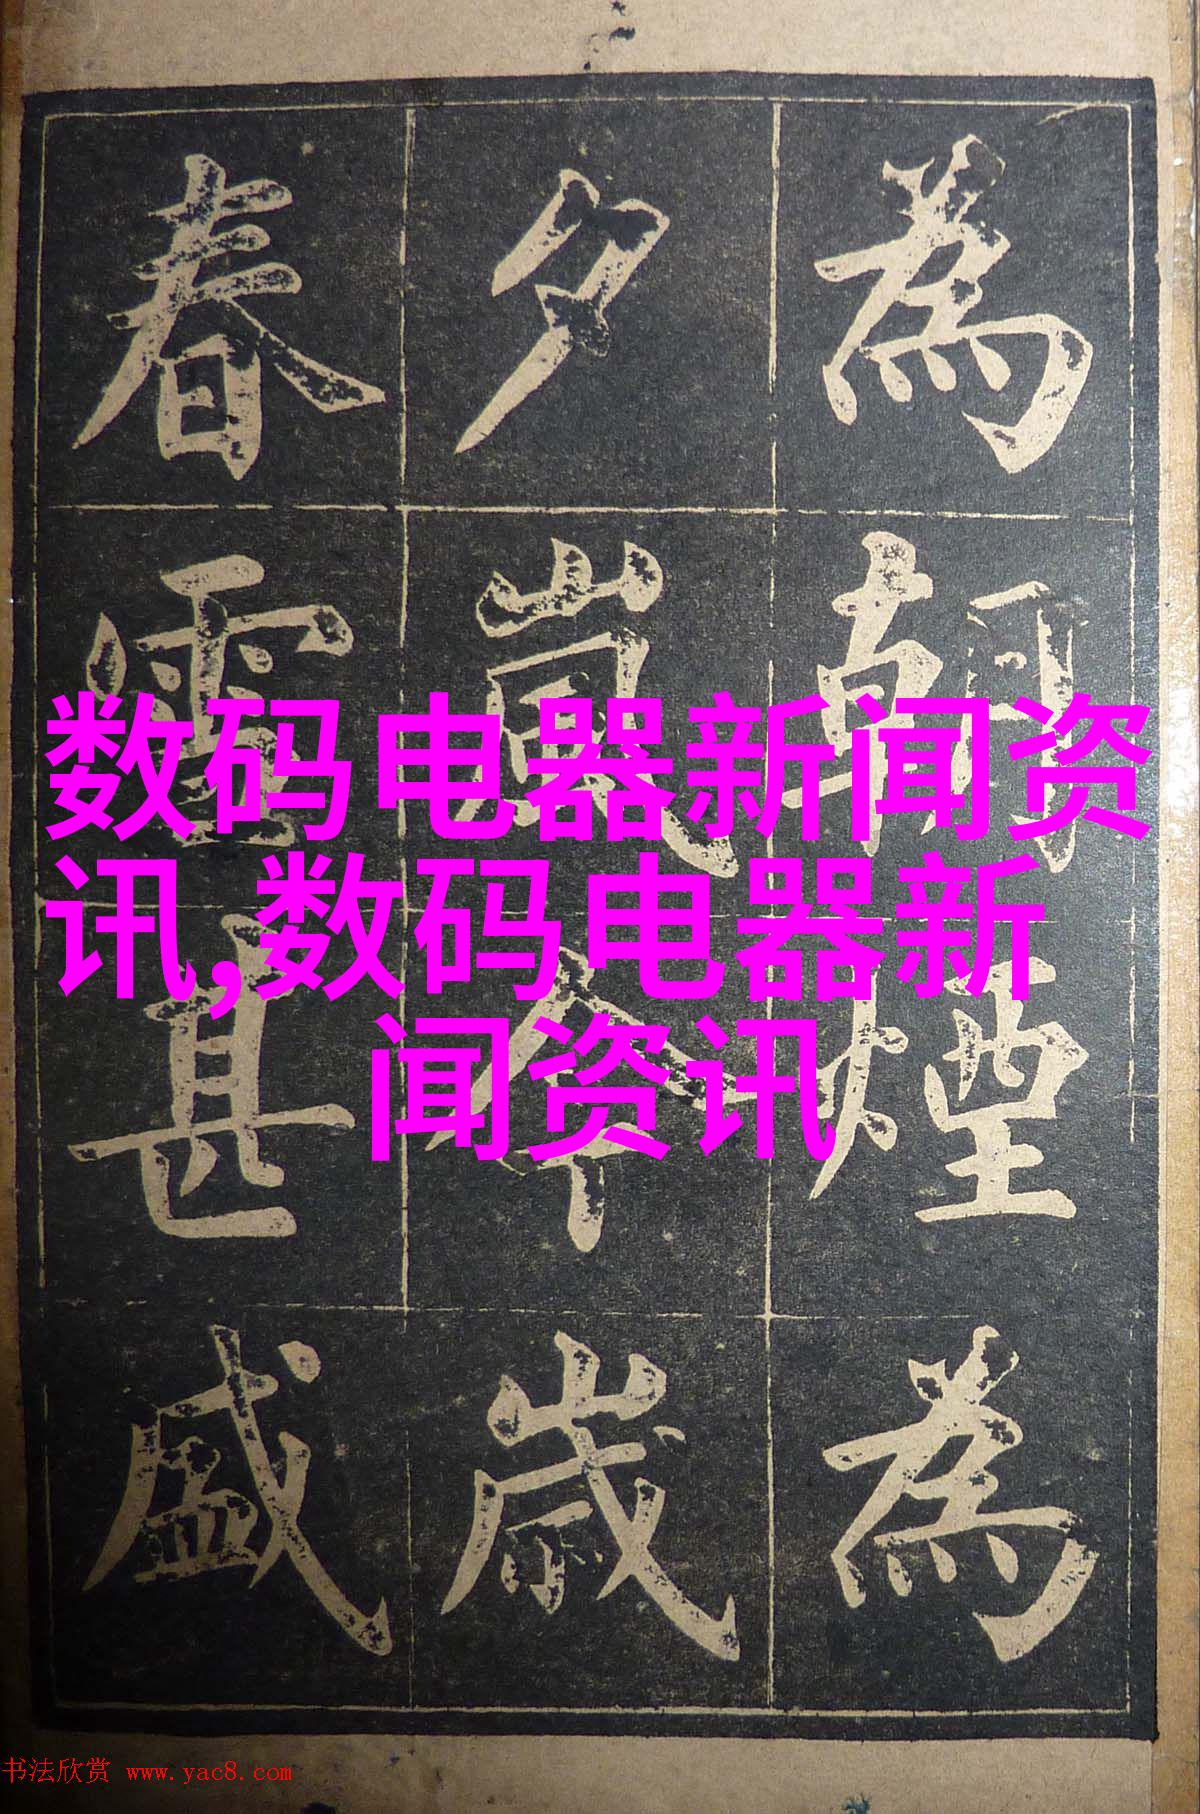 為朝煙為
夕嵐今歲
春雪甚盛
数码电器新闻资
讯,数码电器新
闻资讯
书法欣赏 www.yac8.com